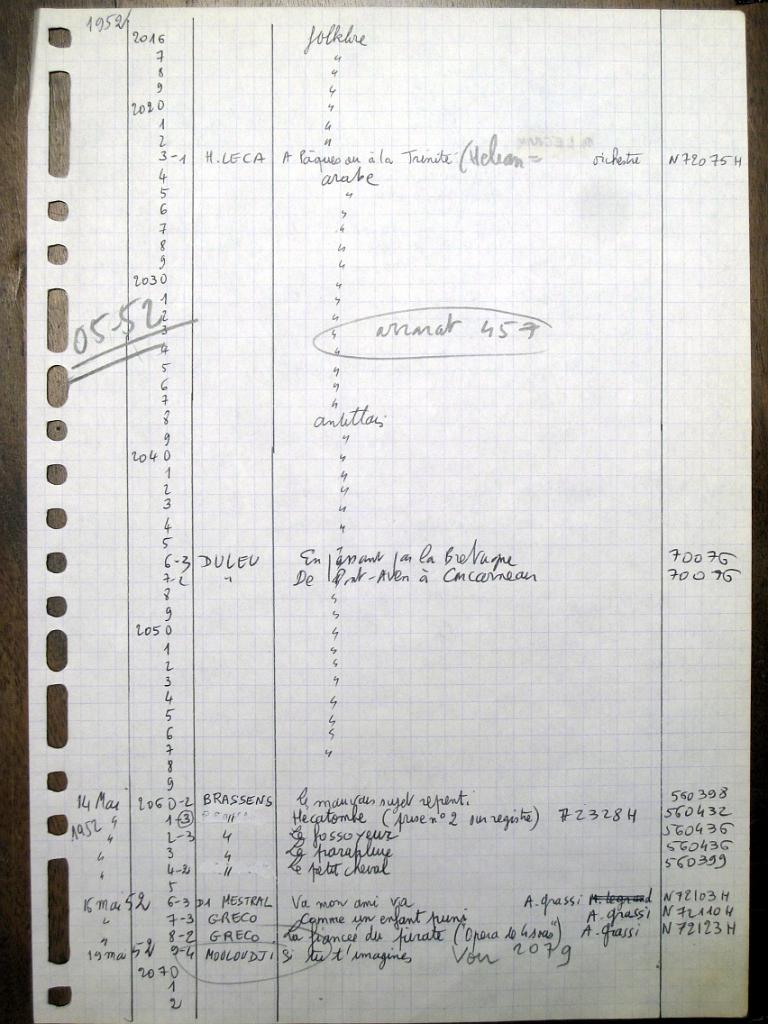 1952
2016 folklore
7 "
8 "
9 "
2020 "
1 "
2 "
3-1 H. LECA A Pâques ou à la Trinité (Helian = orchestre N72075H
4 arabe
5 "
6 "
7 "
8 "
9 "
2030 "
1 "
05-52
2 "
3 " ararat 457
4 "
5 "
6 "
7 "
8 antillais
9 "
2040 "
1 "
2 "
3 "
4 "
5
6-3 DULEU En passant par la Bretagne 70076
7-2 " De Pont-Aven à Concarneau 70076
8 "
9 "
2050 "
1 "
2 "
3 "
4 "
5 "
6 "
7 "
8
9
14 Mai 2060-2 BRASSENS Le mauvais sujet repenti 560398
1952 " 1-3 " Hécatombe (prise n°2 sur registre) 72328H 560432
" 2-3 " Le fossoyeur 560436
" 3 " Le parapluie 560436
" 4-2 " Le petit cheval 560399
5
16 mai 52 6-3 D1 MESTRAL Va mon ami va A. grassi M. legrand N72103H
" 7-3 GRECO Comme un enfant puni A. grassi N72110H
" 8-2 GRECO La fiancée du pirate (Opera de 4 sous) A. grassi N72123H
19 mai 52 9-4 MOULOUDJI Si tu t'imagines Voir 2079
2070
1
2